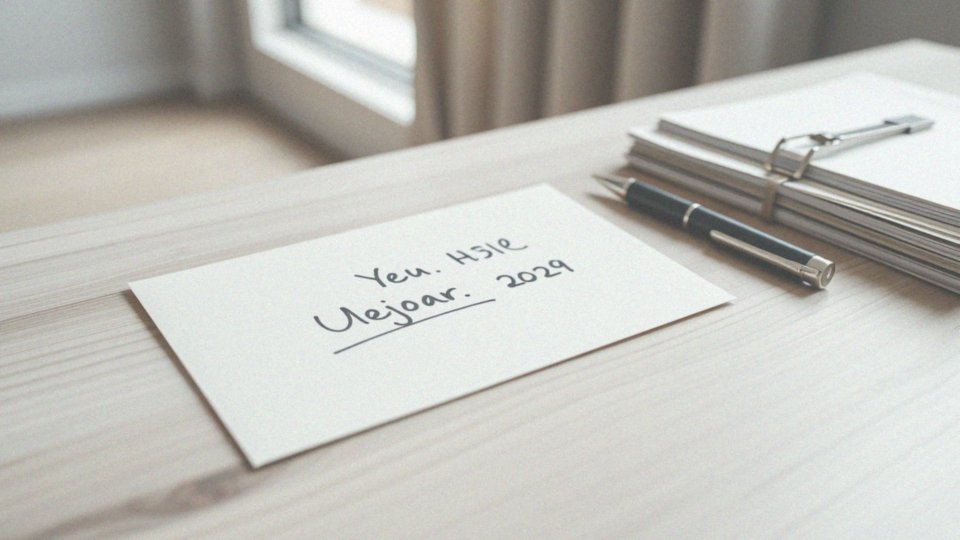 Yeu. H5le
Ulejoar. 2029